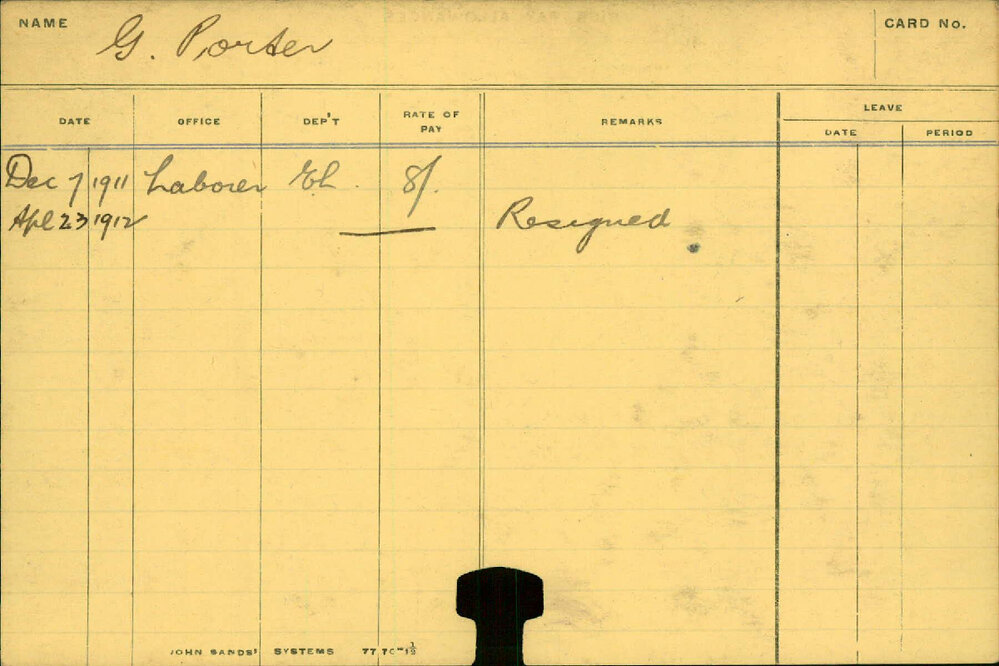 NAME G. Porter CARD No.
DATE OFFICE DEP'T RATE OF PAY REMARKS LEAVE
DATE PERIOD
Dec 7 1911 Laborer El. 8/.
Apl 23 1912 Resigned
JOHN SANDS' SYSTEMS